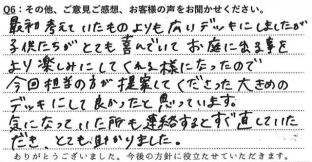 Q6：その他、ご意見ご感想、お客様の声をお聞かせください。
最初考えていたものよりも広いデッキにしましたが
子供たちがとても喜んでいてお庭に出る事を
より楽しみにしてくれる様になったので
今回担当の方が提案してくださった大きめの
デッキにして良かったと思っています。
気になっていた所も連絡するとすぐ直していた
だき、とても助かりました。
ありがとうございました。今後の方針に役立たせていただきます。